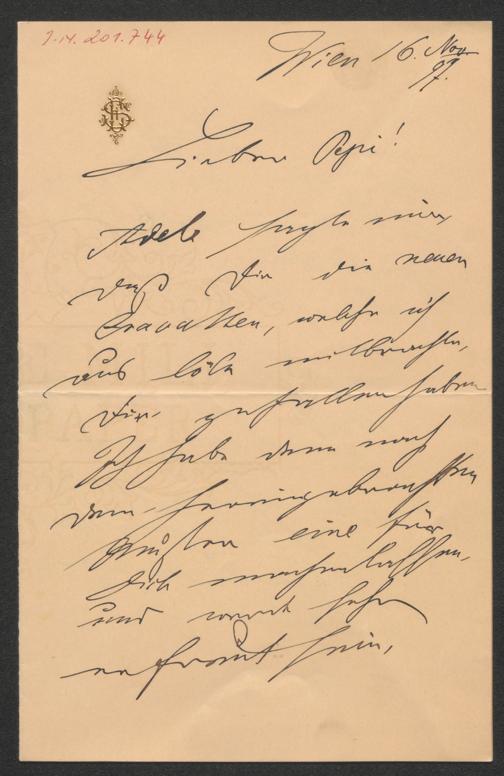 I.N. 201.744
Wien 16. Nov.
97.
Lieber Pepi!
Adele sagte mir,
daß Dir die neuen
Cravatten, welche ich
aus Köln mitbrachte,
Dir gefallen haben
Ich habe dem nach
dem hereingebrachten
Muster eine für
Dich machen lassen,
und werde sehr
erfreut sein,